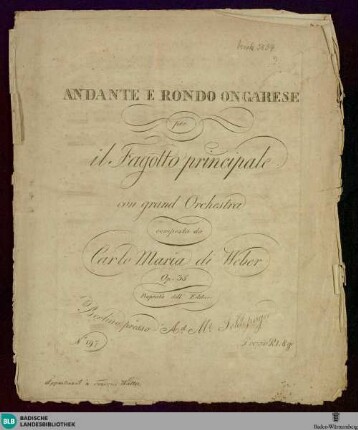 ANDANTE E RONDO ONGARESE
per
il Fagotto principale
con grand Orchestra
composto da
Carlo Maria de Weber
Op. 35
Proprietà dell' Edit.
Berlino presso Ad. Mt. Schlesinger
N° 197
BLB
BADISCHE
LANDESBIBLIOTHEK
Baden-Württemberg